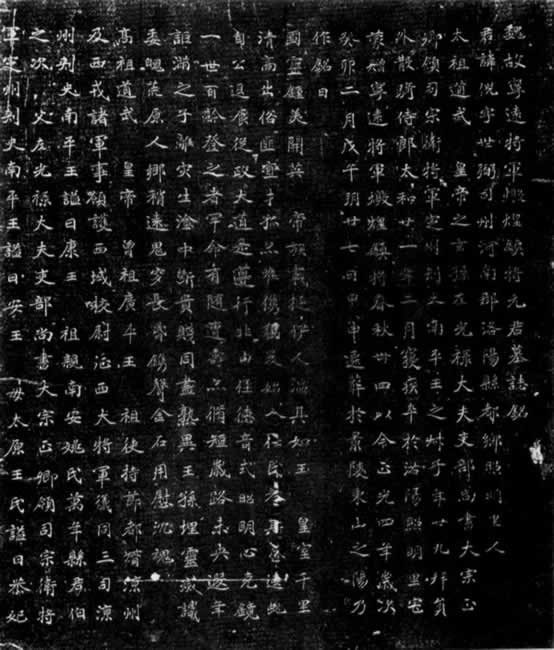 魏故寧遠將軍燉煌鎮將元君墓誌銘
君諱倪字世弼司州河南郡洛陽縣都鄉照明里人
太祖道武 皇帝之玄孫左光祿大夫吏部尚書大宗正
卿領司宗衛將軍定州刺史南平王之叔子年廿九拜員
外散騎侍郎太和廿一年二月寢疾卒於洛陽照明里宅
贈寧遠將軍燉煌鎮將春秋卌四以今正光四年歲次
癸卯二月戊午朔廿七日甲申遷葬於景陵東山之陽乃
作銘曰
國靈啟美開 帝族氣挺伊人淵其如玉 皇室千里
清高出俗匪
自公退食從政大道必遵行非由徑德音式昭明心克鏡
一世百齡登之者罕今有隨運壽亦脩短歲路未央遐年
詎滿之子離災生途中斷貴賤同盡孰異王孫埋靈
委魄荒原人鄉稍遠鬼穸長昏鐫聲金石用慰沉魂
高祖道武 皇帝 曾祖廣平王 祖使持節都督涼州
及西戎諸軍事領護西域校尉征西大將軍儀同三司涼
州刺史南平王謚曰康王 祖親南安姚氏萬年縣君伯
之次 父左光祿大夫吏部尚書大宗正卿領司宗衛將
軍定州刺史南平王謚曰安王 母太原王氏謚曰恭妃